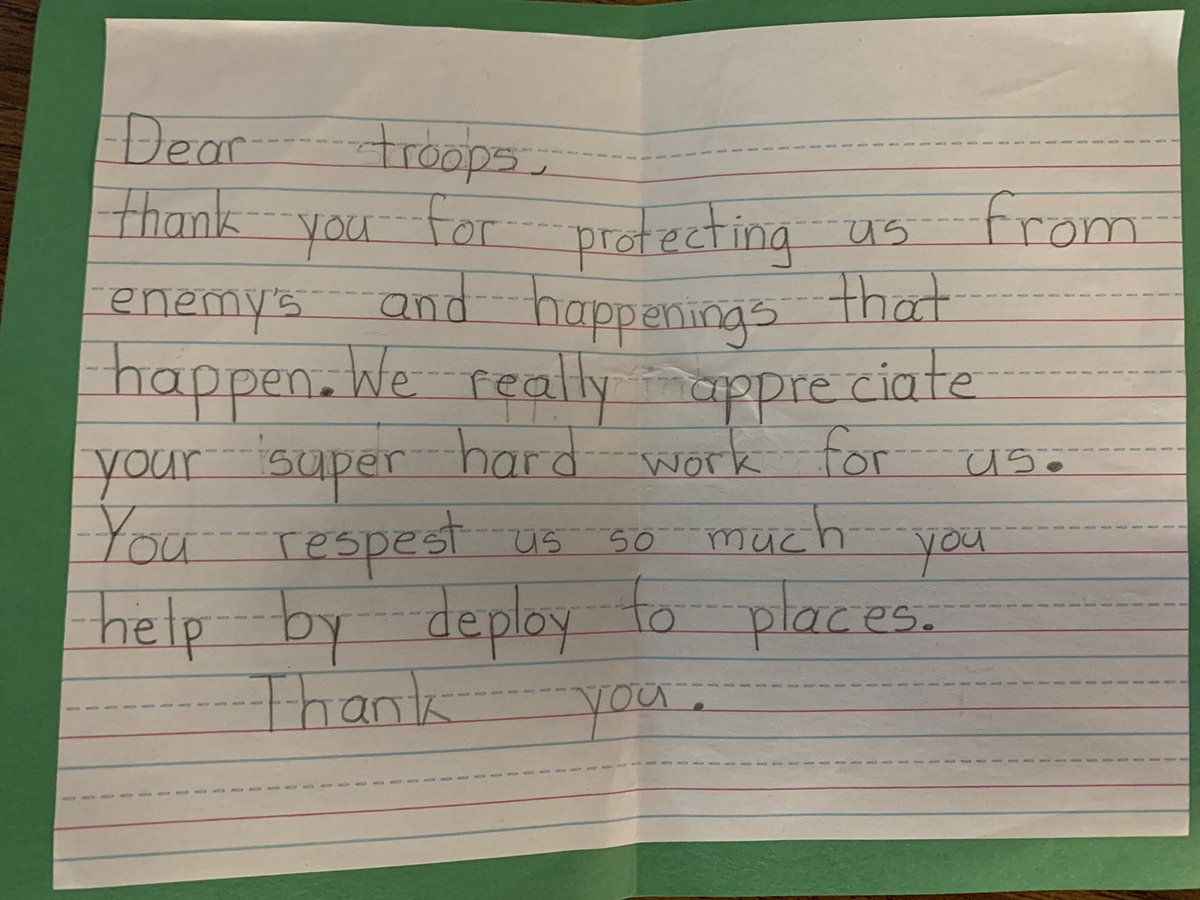 Dear troops,
thank you for protecting us from
enemy's and happenings that
happen. We really appreciate
your super hard work for us.
You respest us so much you
help by deploy to places.
Thank you.